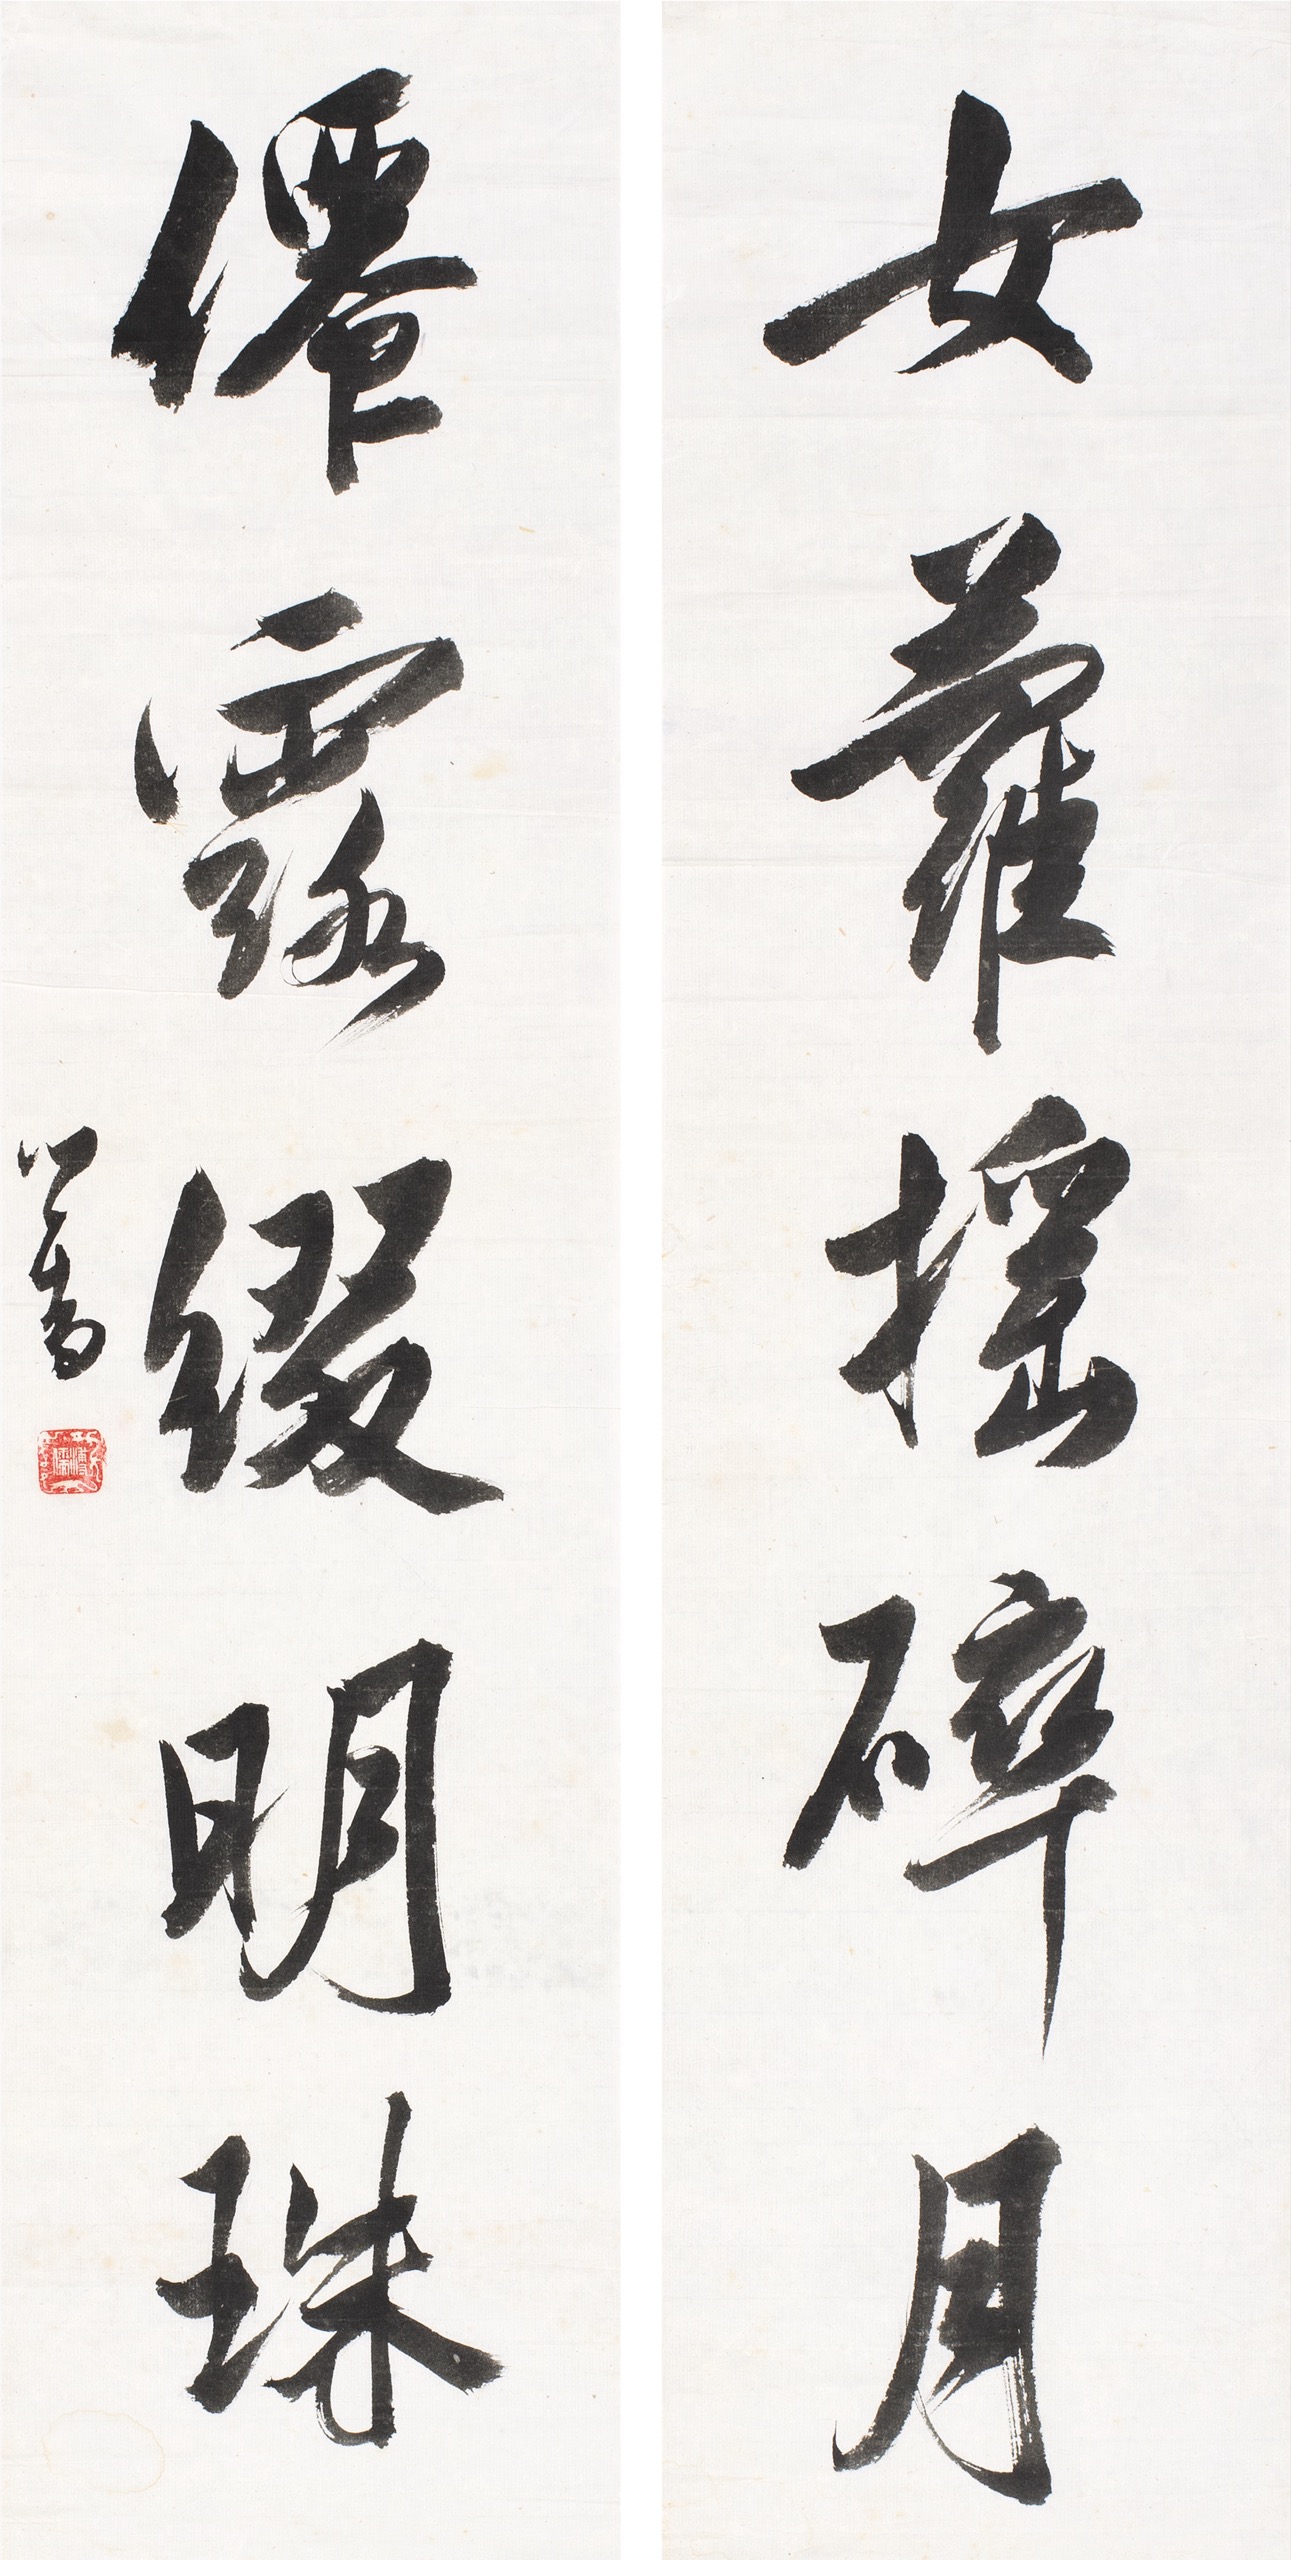 女蘿搖碎月
僊露綴明珠
心畬